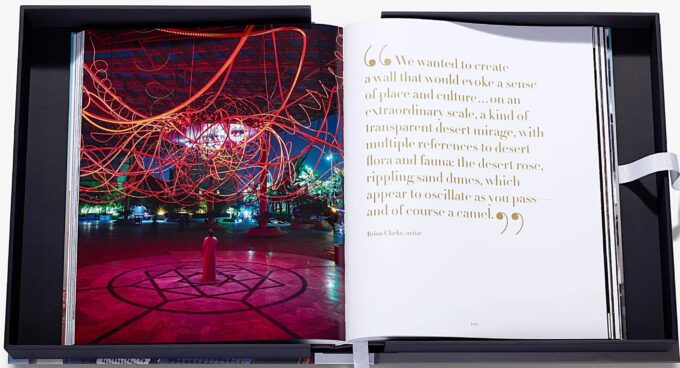 “We wanted to create
a wall that would evoke a sense
of place and culture...on an
extraordinary scale, a kind of
transparent desert mirage, with
multiple references to desert
flora and fauna: the desert rose,
rippling sand dunes, which
appear to oscillate as you pass—
and of course a camel.”
Brian Clarke, artist